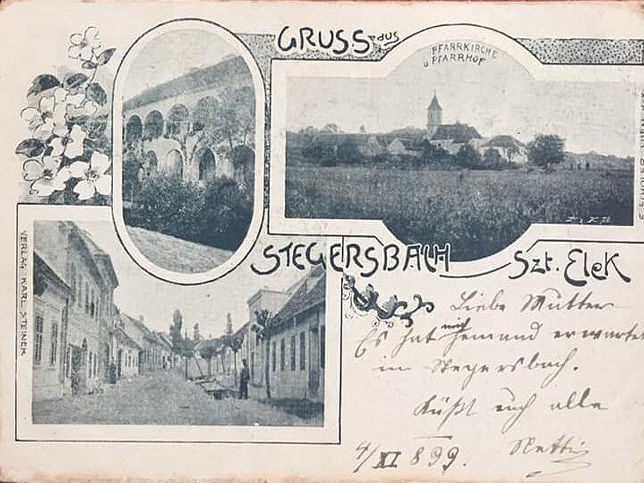 GRUSS aus
PFARRKIRCHE
u PFARRHOF
STEGERSBACH Szt. Elek
VERLAG KARL STEINER
Liebe Mutter
Es hat mich jemand erwartet
in Stegersbach.
Küßt euch alle
Netti
4/XI 899.